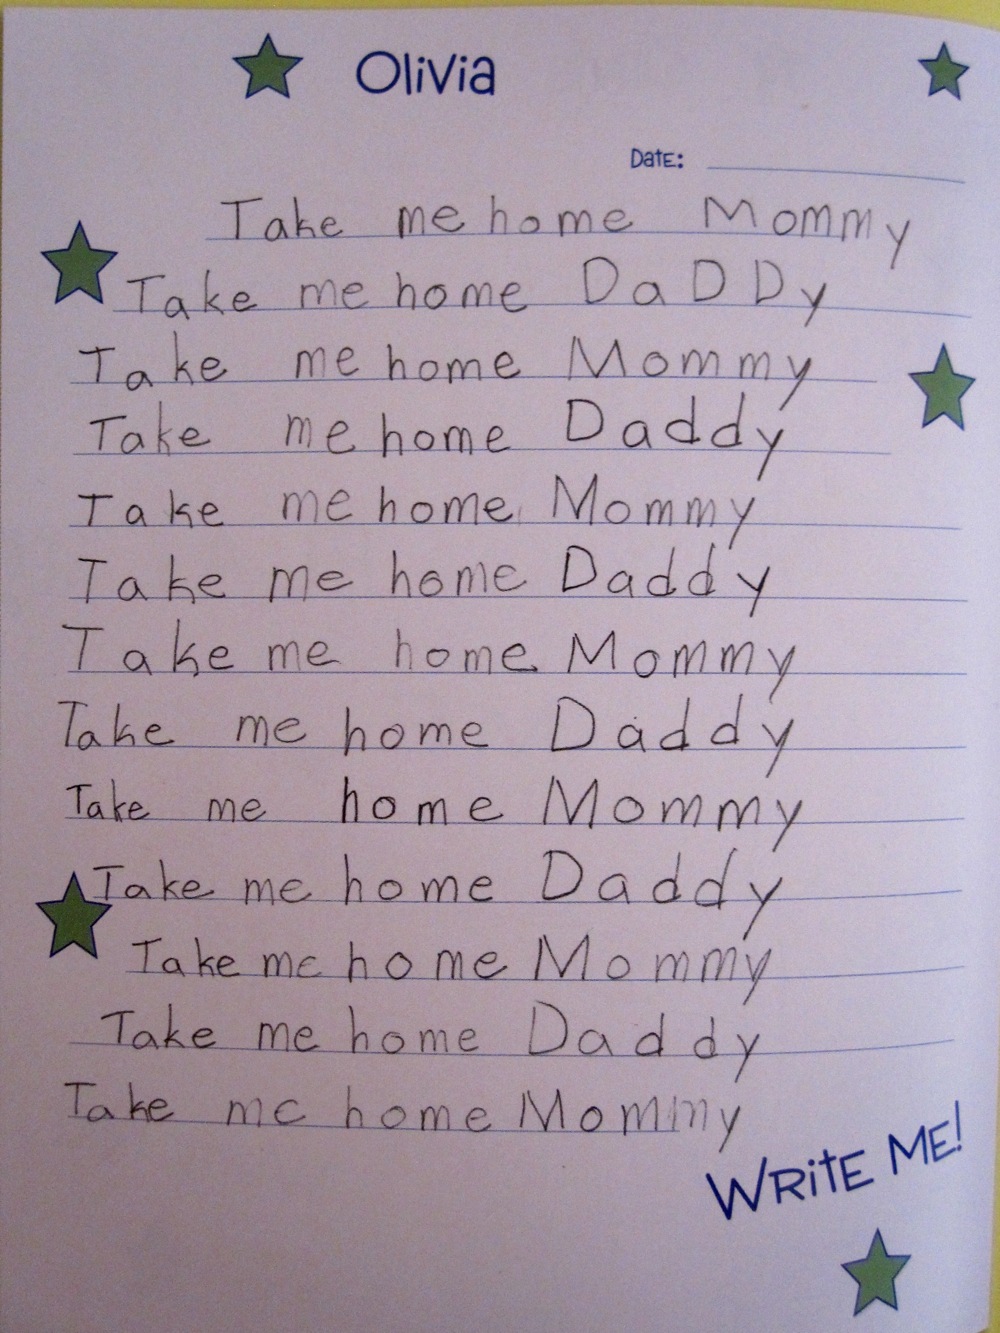 Olivia
Date:
Take me home Mommy
Take me home DaDDy
Take me home Mommy
Take me home Daddy
Take me home Mommy
Take me home Daddy
Take me home Mommy
Take me home Daddy
Take me home Mommy
Take me home Daddy
Take me home Mommy
Take me home Daddy
Take me home Mommy
WRitE ME!